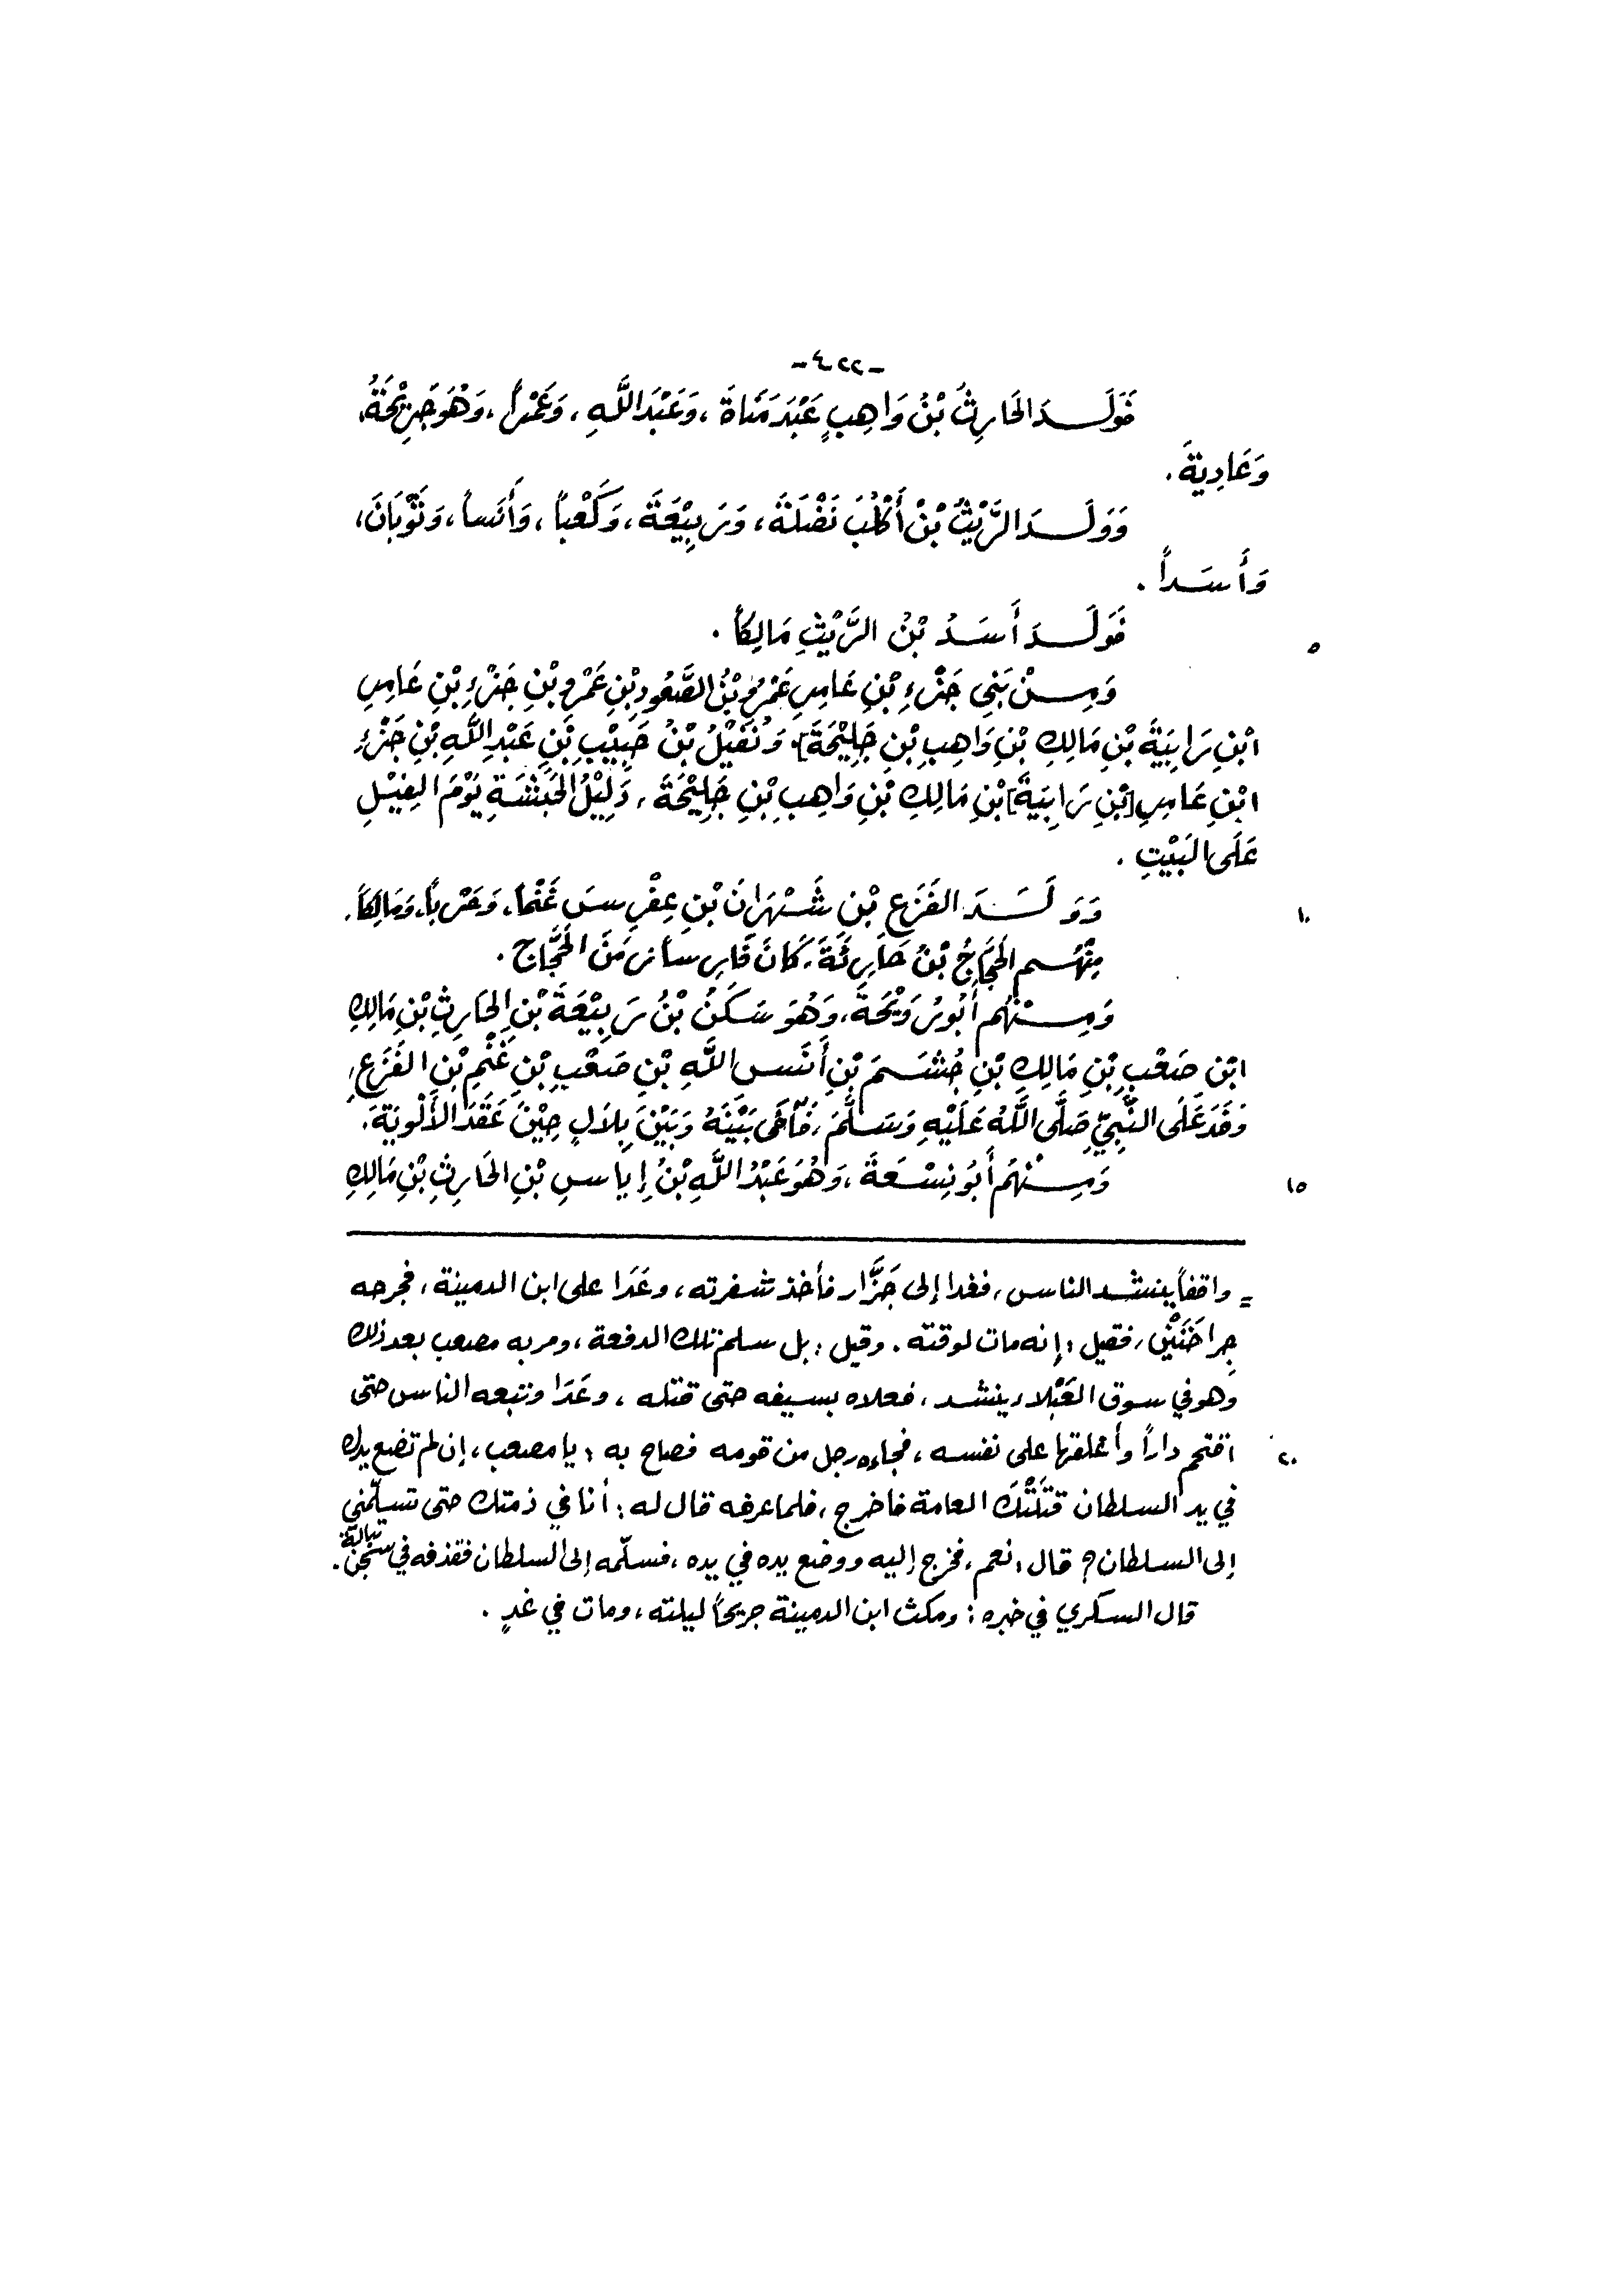 -٤٢٢-
فَوَلَدَ الحَارِثُ بْنُ وَاهِبٍ عَبْدَ مَنَاةَ، وَعَبْدَ اللَّهِ، وَعَمْراً، وَهُوَ حَرِيْحَةُ،
وَعَادِيَةَ.
وَوَلَدَ الرَّيْثُ بْنُ أَكْلُبَ نَضْلَةَ، وَرَبِيْعَةَ، وَكَعْباً، وَأَنَساً، وَثَوْبَانَ،
وَأَسَداً.
٥ فَوَلَدَ أَسَدُ بْنُ الرَّيْثِ مَالِكاً.
وَمِنْ بَنِي جَزْءِ بْنِ عَامِرٍ عَمْرُو بْنُ الصَّعُودِ بْنِ عَمْرِو بْنِ جَزْءِ بْنِ عَامِرِ
ابْنِ رَابِيَةَ بْنِ مَالِكِ بْنِ وَاهِبِ بْنِ جَلِيْحَةَ]، وَنُفَيْلُ بْنُ حَبِيْبِ بْنِ عَبْدِ اللَّهِ بْنِ جَزْءِ
ابْنِ عَامِرِ [بْنِ رَابِيَةَ] بْنِ مَالِكِ بْنِ وَاهِبِ بْنِ جَلِيْحَةَ، دَلِيْلُ الحَبَشَةِ يَوْمَ الفِيْلِ
عَلَى البَيْتِ.
١٠ وَوَلَدَ الفَزَعِ بْنِ شَهْرَانَ بْنِ عِفْرِسَ غَنْماً، وَحَرْباً، وَمَالِكاً.
مِنْهُم الحَجَّاجُ بْنُ حَارِثَةَ، كَانَ فَارِساً زَمَنَ الحَجَّاجِ.
وَمِنْهُم أَبُو رُوَيْحَةَ، وَهُوَ سَكَنُ بْنُ رَبِيْعَةَ بْنِ الحَارِثِ بْنِ مَالِكِ
ابْنِ صَعْبِ بْنِ مَالِكِ بْنِ جُشَمَ بْنِ أَنَسِ اللَّهِ بْنِ صَعْبِ بْنِ غَنْمِ بْنِ الفَزَعِ،
وَفَدَ عَلَى النَّبِيِّ صَلَّى اللَّهُ عَلَيْهِ وَسَلَّمَ، فَآخَى بَيْنَهُ وَبَيْنَ بِلَالٍ حِيْنَ عَقَدَ الأَلْوِيَةَ.
١٥ وَمِنْهُم أَبُو نِسْعَةَ، وَهُوَ عَبْدُ اللَّهِ بْنُ إِيَاسِ بْنِ الحَارِثِ بْنِ مَالِكِ
= واقفاً ينشد الناس، فغدا إلى جَزَّار فأخذ شفرته، وعَدَا على ابن الدمينة، فجرحه
جِراحَتَيْن، فقيل: إنه مات لوقته. وقيل: بل سلم تلك الدفعة، ومر به مصعب بعد ذلك
وهو في سوق العَبْلاء ينشد، فعلاه بسيفه حتى قتله، وعَدَا وتبعه الناس حتى
٢٠ اقتحم داراً وأغلقها على نفسه، فجاءه رجل من قومه فصاح به: يا مصعب، إن لم تضع يدك
في يد السلطان قتَلَتْكَ العامة فاخرج، فلما عرفه قال له: أنا في ذمتك حتى تسلّمني
إلى السلطان؟ قال: نعم، فخرج إليه ووضع يده في يده، فسلّمه إلى السلطان فقذفه في سجن تبالة.
قال السكري في خبره: ومكث ابن الدمينة جريحاً ليلته، ومات في غدٍ.